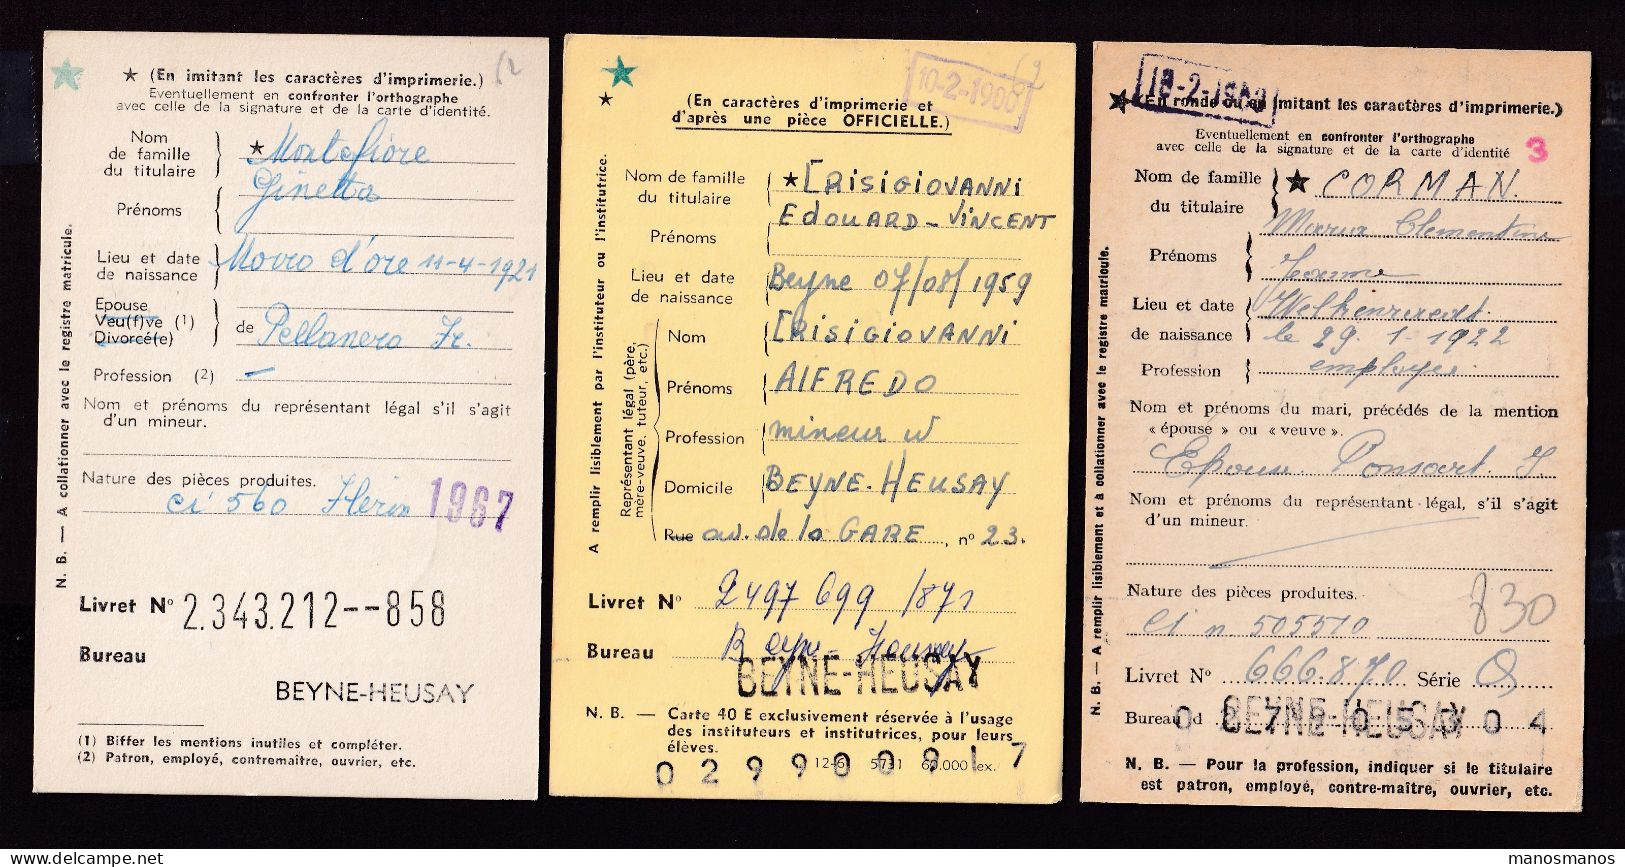 ★ (En imitant les caractères d'imprimerie.)
Eventuellement en confronter l'orthographe
avec celle de la signature et de la carte d'identité.
Nom
de famille
du titulaire
★ Montefiore
Prénoms
Ginetta
Lieu et date
de naissance
Movro d'ore 11-4-1921
Epouse
Veu(f)ve (1)
Divorcé(e)
de Pellanera Fr.
Profession (2) —
Nom et prénoms du représentant légal s'il s'agit
d'un mineur.
Nature des pièces produites.
ci 560 Fléron 1967
N. B. — A collationner avec le registre matricule.
Livret N° 2.343.212--858
Bureau
BEYNE-HEUSAY
(1) Biffer les mentions inutiles et compléter.
(2) Patron, employé, contremaître, ouvrier, etc.
10-2-1900
★ (En caractères d'imprimerie et
d'après une pièce OFFICIELLE.)
Nom de famille
du titulaire
★ CRISIGIOVANNI
Prénoms
EDOUARD-VINCENT
Lieu et date
de naissance
Beyne 07/08/1959
Représentant légal (père,
mère-veuve, tuteur, etc.)
Nom CRISIGIOVANNI
Prénoms AlFREDO
Profession mineur
Domicile BEYNE-HEUSAY
Rue av. de la GARE, n° 23.
A remplir lisiblement par l'instituteur ou l'institutrice.
Livret N° 2497699/871
Bureau Beyne-Heusay
BEYNE-HEUSAY
N. B. — Carte 40 E exclusivement réservée à l'usage
des instituteurs et institutrices, pour leurs
élèves.
12-6 5731 60.000 ex.
029900917
★ (En ronde ou en imitant les caractères d'imprimerie.)
Eventuellement en confronter l'orthographe
avec celle de la signature et de la carte d'identité 3
Nom de famille
du titulaire
★ CORMAN.
Prénoms
Maria Clementine
Lieu et date
de naissance
Welkenraedt
le 29.1-1922
Profession employée
Nom et prénoms du mari, précédés de la mention
« épouse » ou « veuve ».
Epouse Ponsart. J
Nom et prénoms du représentant légal, s'il s'agit
d'un mineur.
Nature des pièces produites.
830
ci n 505510
Livret N° 666.870 Série Q
Bureau d
BEYNE-HEUSAY
N. B. — A remplir lisiblement et à collationner avec le registre matricule.
N. B. — Pour la profession, indiquer si le titulaire
est patron, employé, contre-maître, ouvrier, etc.
manosmanos